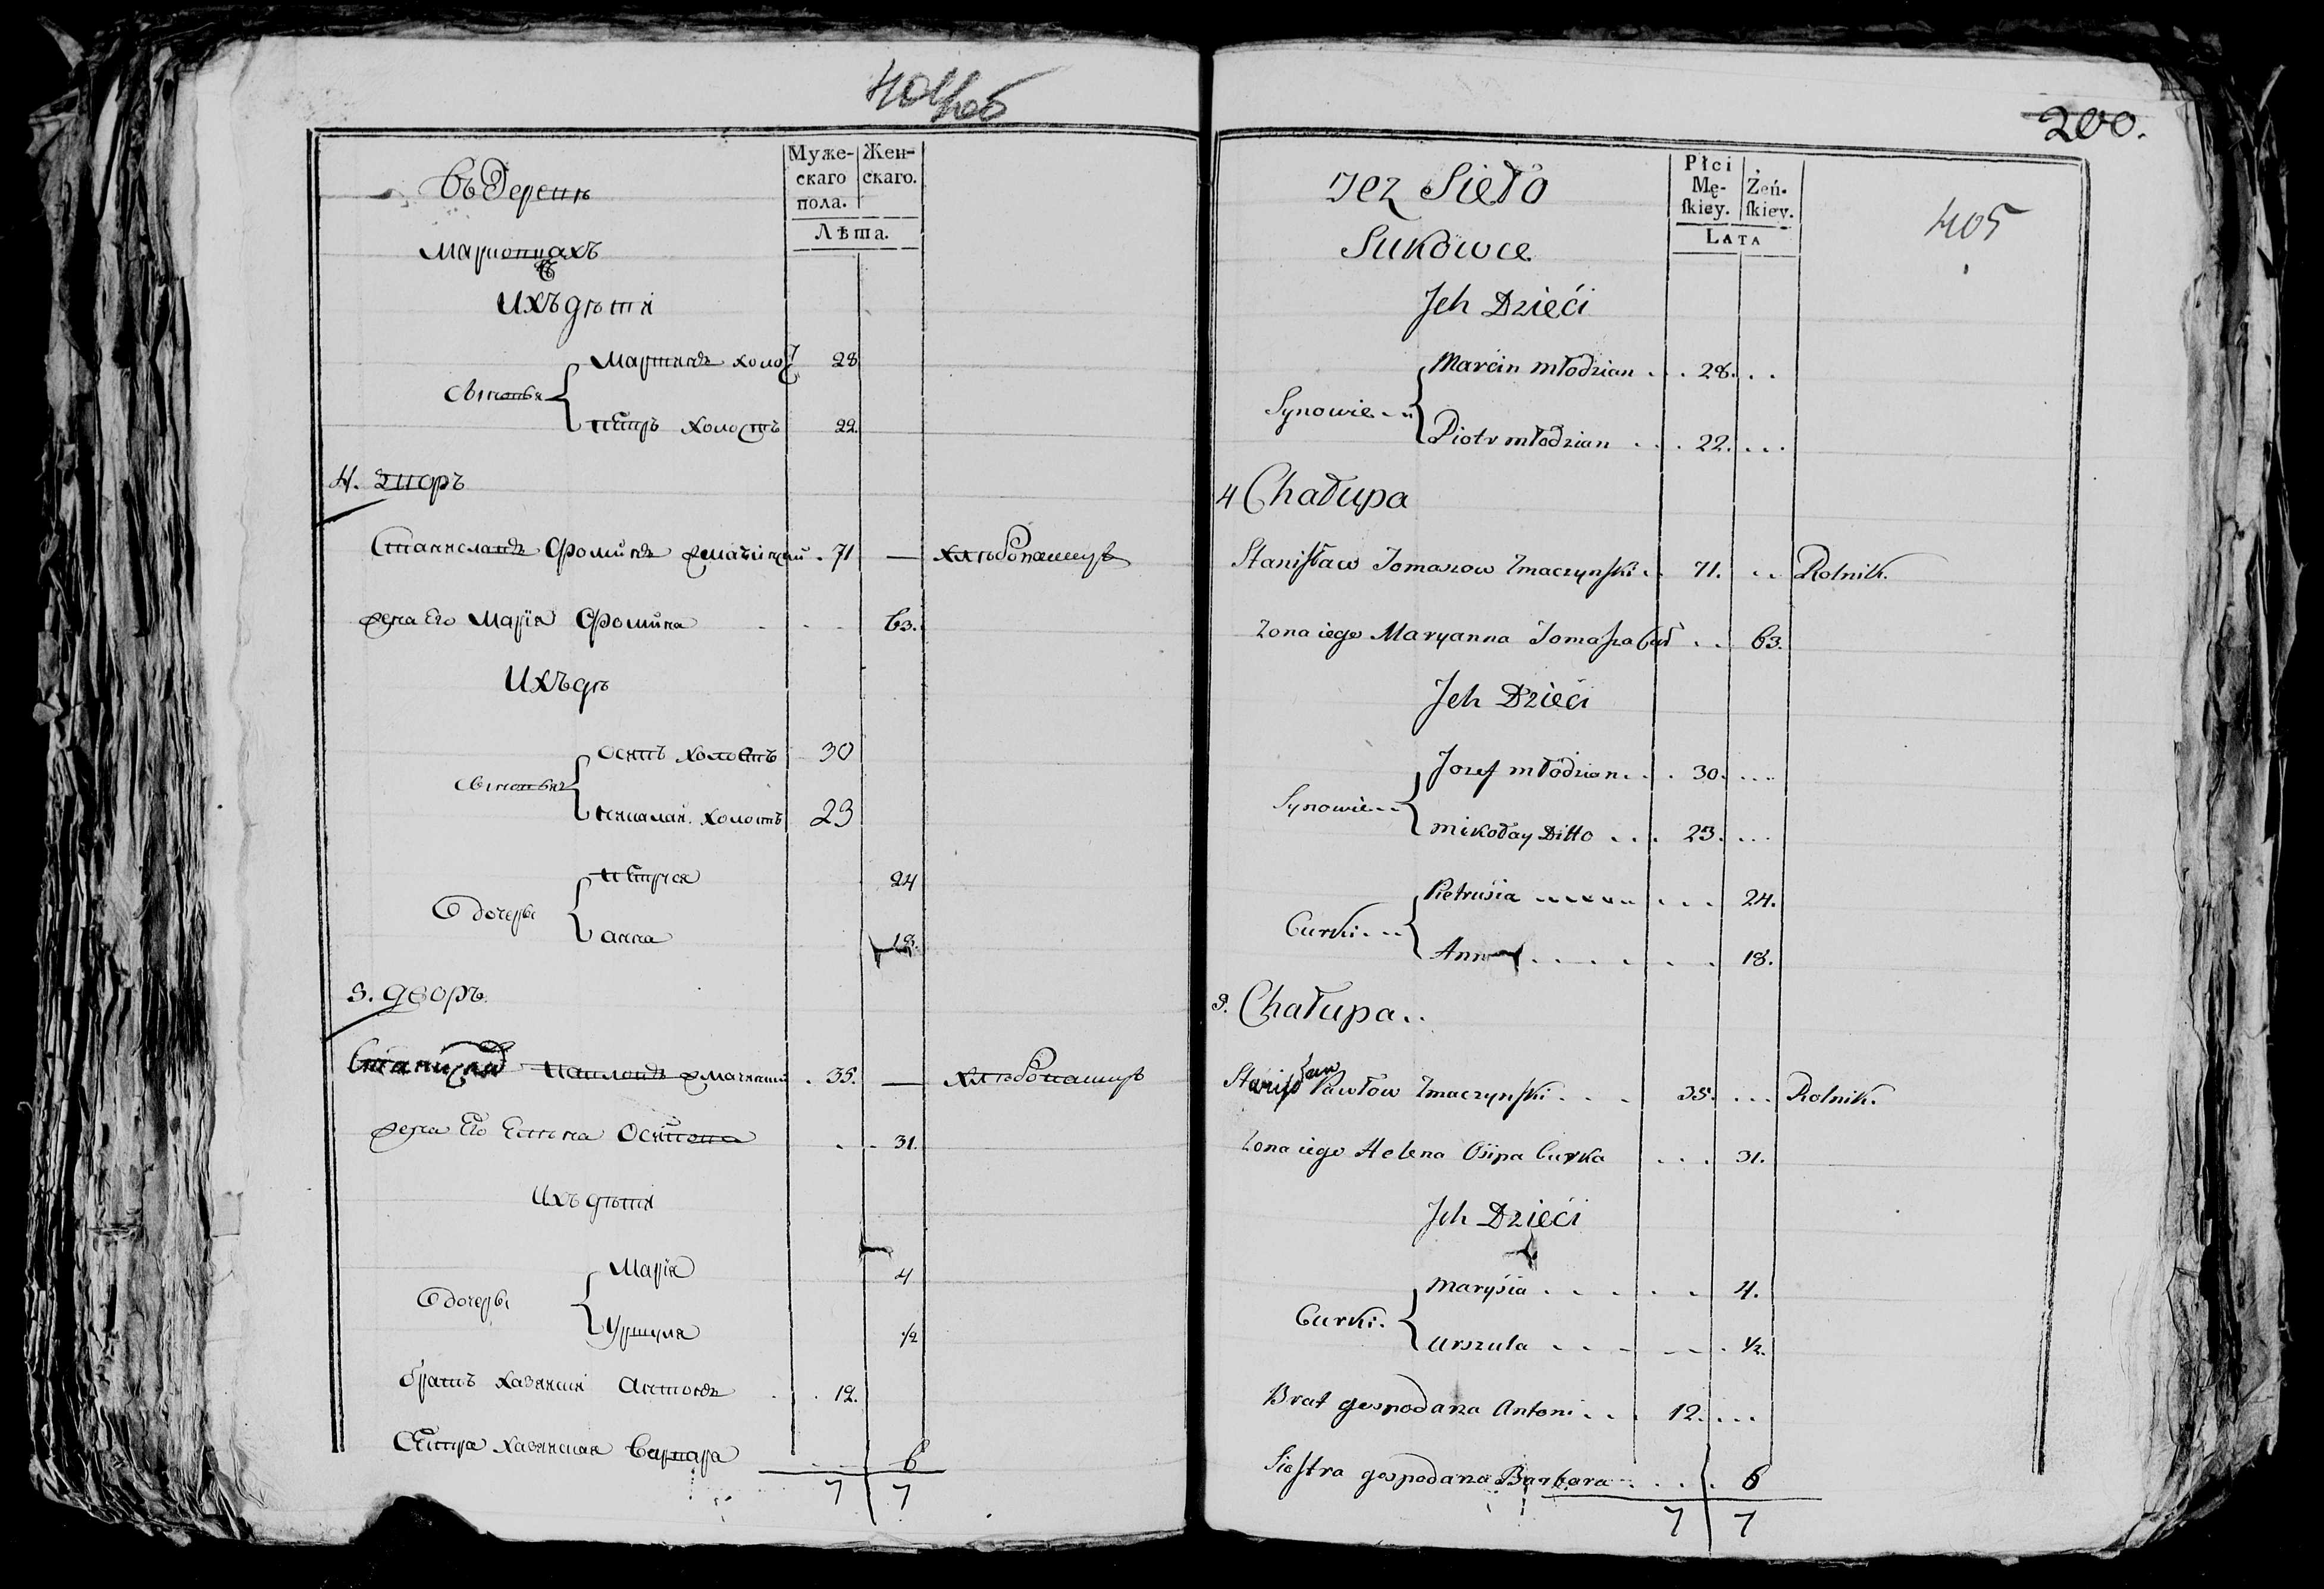 404об
Муже-
скаго
пола.
Жен-
скаго.
Лѣта.
Въ Деревнѣ
Ихъ дѣти
Сыновья
Мартинъ холос 28
Петръ холостъ 22.
4. дворъ
Станиславъ Фоминъ Змачинский . 71 — хлѣбопашецъ
жена Его Марія Фомина . . . 63.
Ихъ дѣ
Сыновья
Осипъ холостъ 30
Николай. холостъ 23
дочери
Петруся 24
Анна 18.
5. дворъ.
Станиславъ Павловъ Змачинский . 35. — хлѣбопашецъ
жена Его Елена Осипова . . . 31.
Ихъ дѣти
дочери
Марія 4
Уршуля 1/2
братъ хазяиский Антонъ . . 12.
Сестра хазяиская Варвара 6
7 7
200.
405
Płci
Mę-
ſkiey.
Żeń-
ſkiey.
LATA
Jez Sieło
Sukowce
Jch Dzieći
Synowie
Marcin młodzian . . 28. . .
Piotr młodzian . . . 22. . . .
4 Chałupa
Staniſław Tomaszow Zmaczynſki . . 71. . . Rolnik.
Zona iego Maryanna Tomaſza Cur . . 63.
Jch Dzieći
Synowie
Jozef młodzian . . . 30. . . .
Mikołay Ditto . . . 23. . . .
Curki
Pietruśia . . . . . . . . . 24.
Anna . . . . . . 18.
5. Chałupa . .
Staniſław Pawłow Zmaczynſki . . . 35. . . . Rolnik.
Zona iego Helena Ośipa Curka . . . 31.
Jch Dzieći
Curki.
Maryśia . . . . . . 4.
Urszula . . . . . . 1/2.
Brat gospodarza Antoni . . . 12. . . .
Sieſtra gospodarza Barbara . . . . 6
7 7